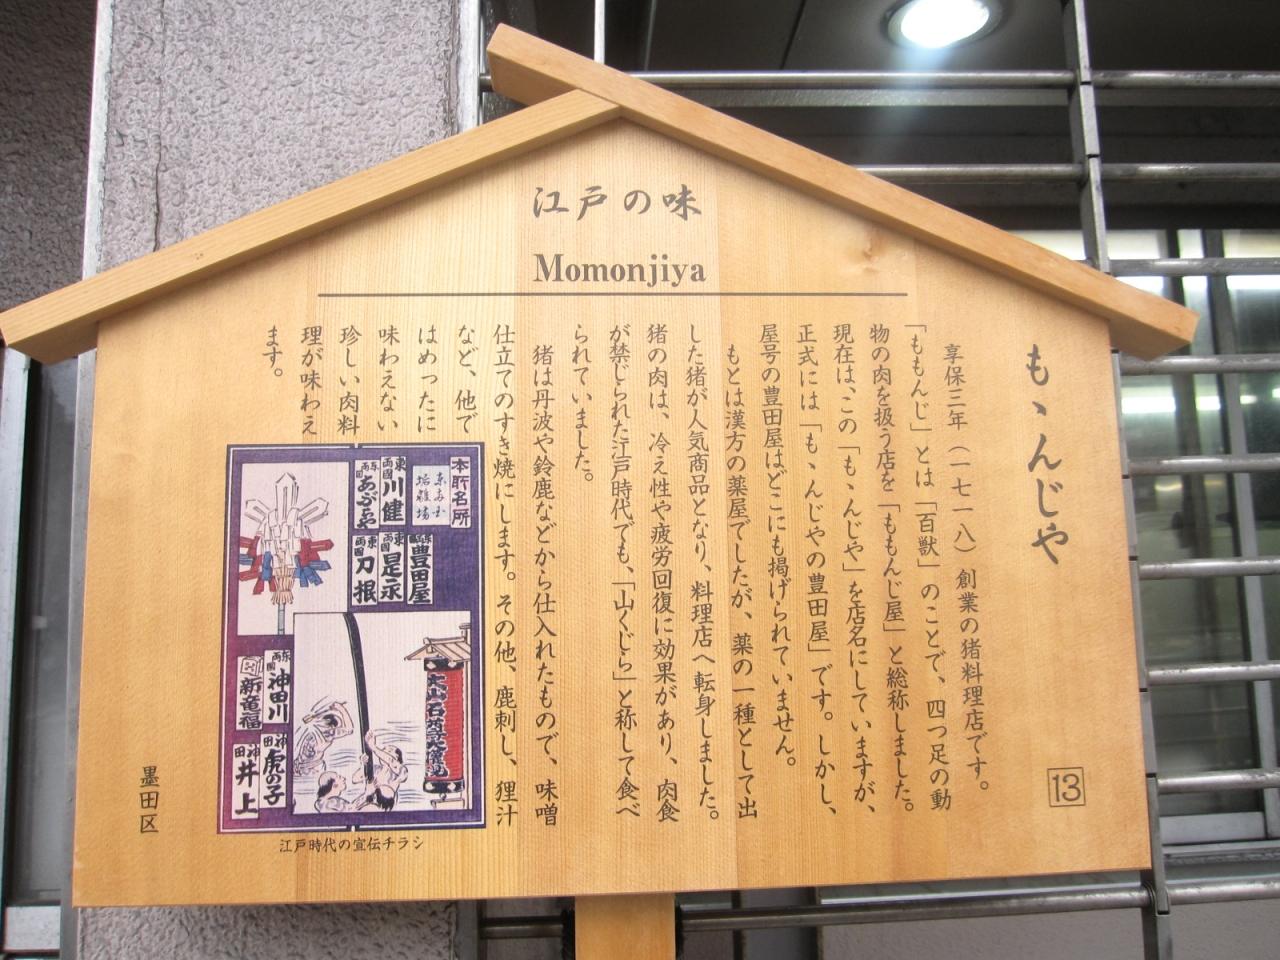 江戸の味
Momonjiya
もゝんじや
13
享保三年（一七一八）創業の猪料理店です。
「ももんじ」とは「百獣」のことで、四つ足の動
物の肉を扱う店を「ももんじ屋」と総称しました。
現在は、この「もゝんじや」を店名にしていますが、
正式には「もゝんじやの豊田屋」です。しかし、
屋号の豊田屋はどこにも掲げられていません。
もとは漢方の薬屋でしたが、薬の一種として出
した猪が人気商品となり、料理店へ転身しました。
猪の肉は、冷え性や疲労回復に効果があり、肉食
が禁じられた江戸時代でも、「山くじら」と称して食べ
られていました。
猪は丹波や鈴鹿などから仕入れたもので、味噌
仕立てのすき焼にします。その他、鹿刺し、狸汁
など、他で
はめったに
味わえない
珍しい肉料
理が味わえ
ます。
本所名所
東両國 川健
東両国 あづまや
豊田屋
東両國 是永
東両国 刀根
東両國 神田川
新竜福
神田 虎の子
神田 井上
江戸時代の宣伝チラシ
墨田区